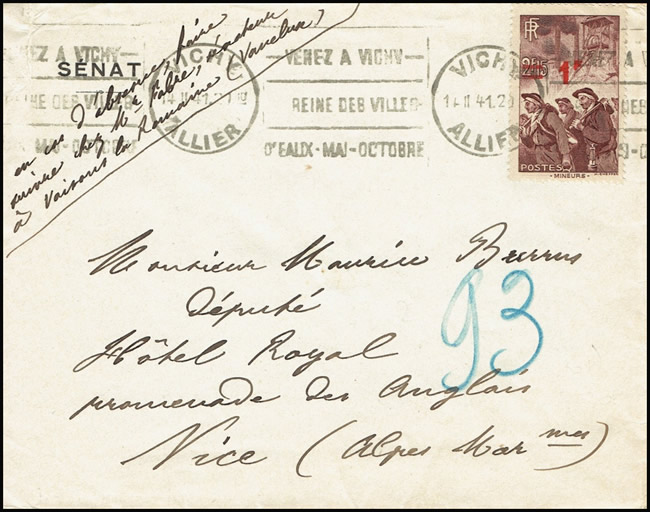 en cas d'absence, faire
suivre chez Mr Fabre, sénateur
à Vaison la Romaine (Vaucluse)
SÉNAT
VENEZ A VICHY
REINE DES VILLES
D'EAUX-MAI-OCTOBRE
VICHY
14 II 41
ALLIER
VENEZ A VICHY
REINE DES VILLES
D'EAUX-MAI-OCTOBRE
VICHY
14 II 41
ALLIER
RF
2F15
1F
POSTES
MINEURS
Monsieur Maurice Burrus
député
Hôtel Royal
promenade des Anglais
Nice (Alpes Marmes)
93